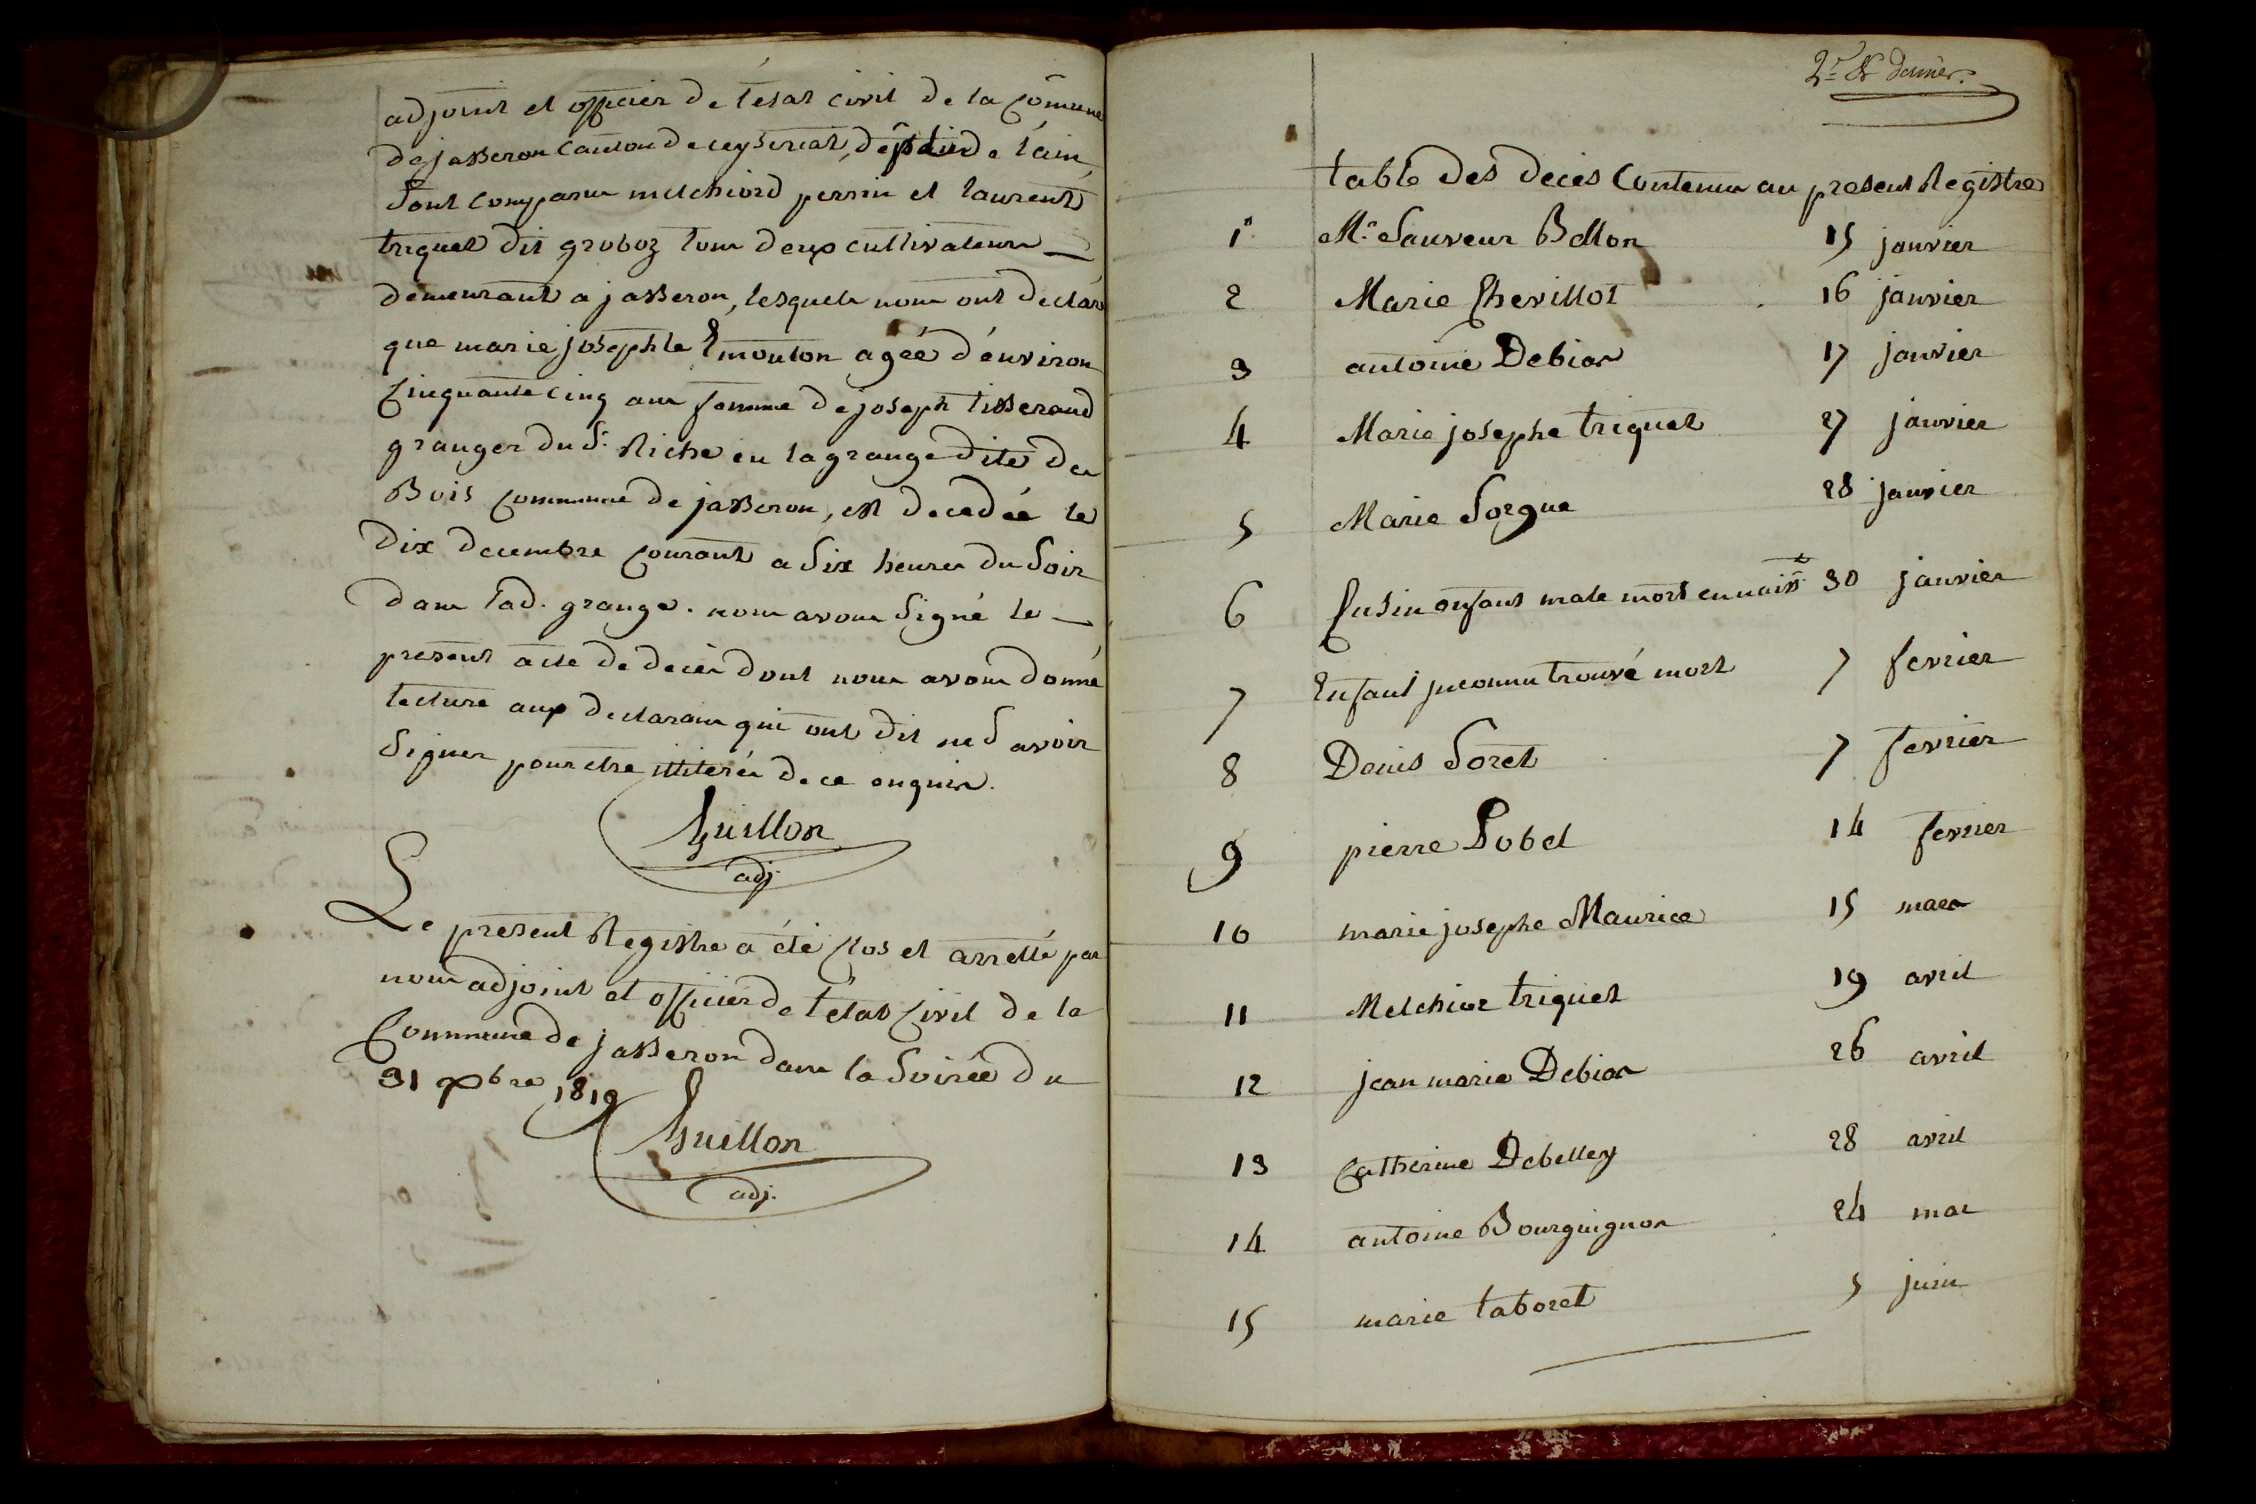 adjoint et officier de l'état civil de la Cômune
de jasseron canton de ceyseriat, depart de l'ain
Sont comparu melchiord perrin et laurent
triquet dit groboz tous deux cultivateurs
demeurant a jasseron, lesquels nous ont declaré
que marie josephte Emonton agée d'environ
Cinquante cinq ans femme de joseph tisserand
granger du Sr. Riche en la grange dite du
Bois commune de jasseron, est decedée le
dix decembre courant a Six heures du Soir
dans lad. grange. nous avons Signé le
present acte de decès dont nous avons donné
lecture aux declarans qui ont dit ne Savoir
Signer pour etre illiterés de ce enquis.
Guillon
adj.
Le present Registre a été Clos et arretté par
nous adjoint et officier de l'état Civil de la
Commune de jasseron dans la Soirée du
31 Xbre 1819
Guillon
adj.
2e & dernier.
table des décès Contenus au present Registre
1º Me Sauveur Bellon 15 janvier
2 Marie Chevillot 16 janvier
3 antoine Debias 17 janvier
4 Marie josephe triquet 27 janvier
5 Marie Sorgue 28 janvier
6 Cusin enfant male mort en naisst 30 janvier
7 Enfant inconnu trouvé mort 7 fevrier
8 Denis Soret 7 fevrier
9 pierre Lobel 14 fevrier
10 marie josephe Maurice 15 mars
11 Melchior triquet 19 avril
12 jean marie Debias 26 avril
13 Catherine Debelley 28 avril
14 antoine Bourguignon 24 mai
15 marie taboret 5 juin